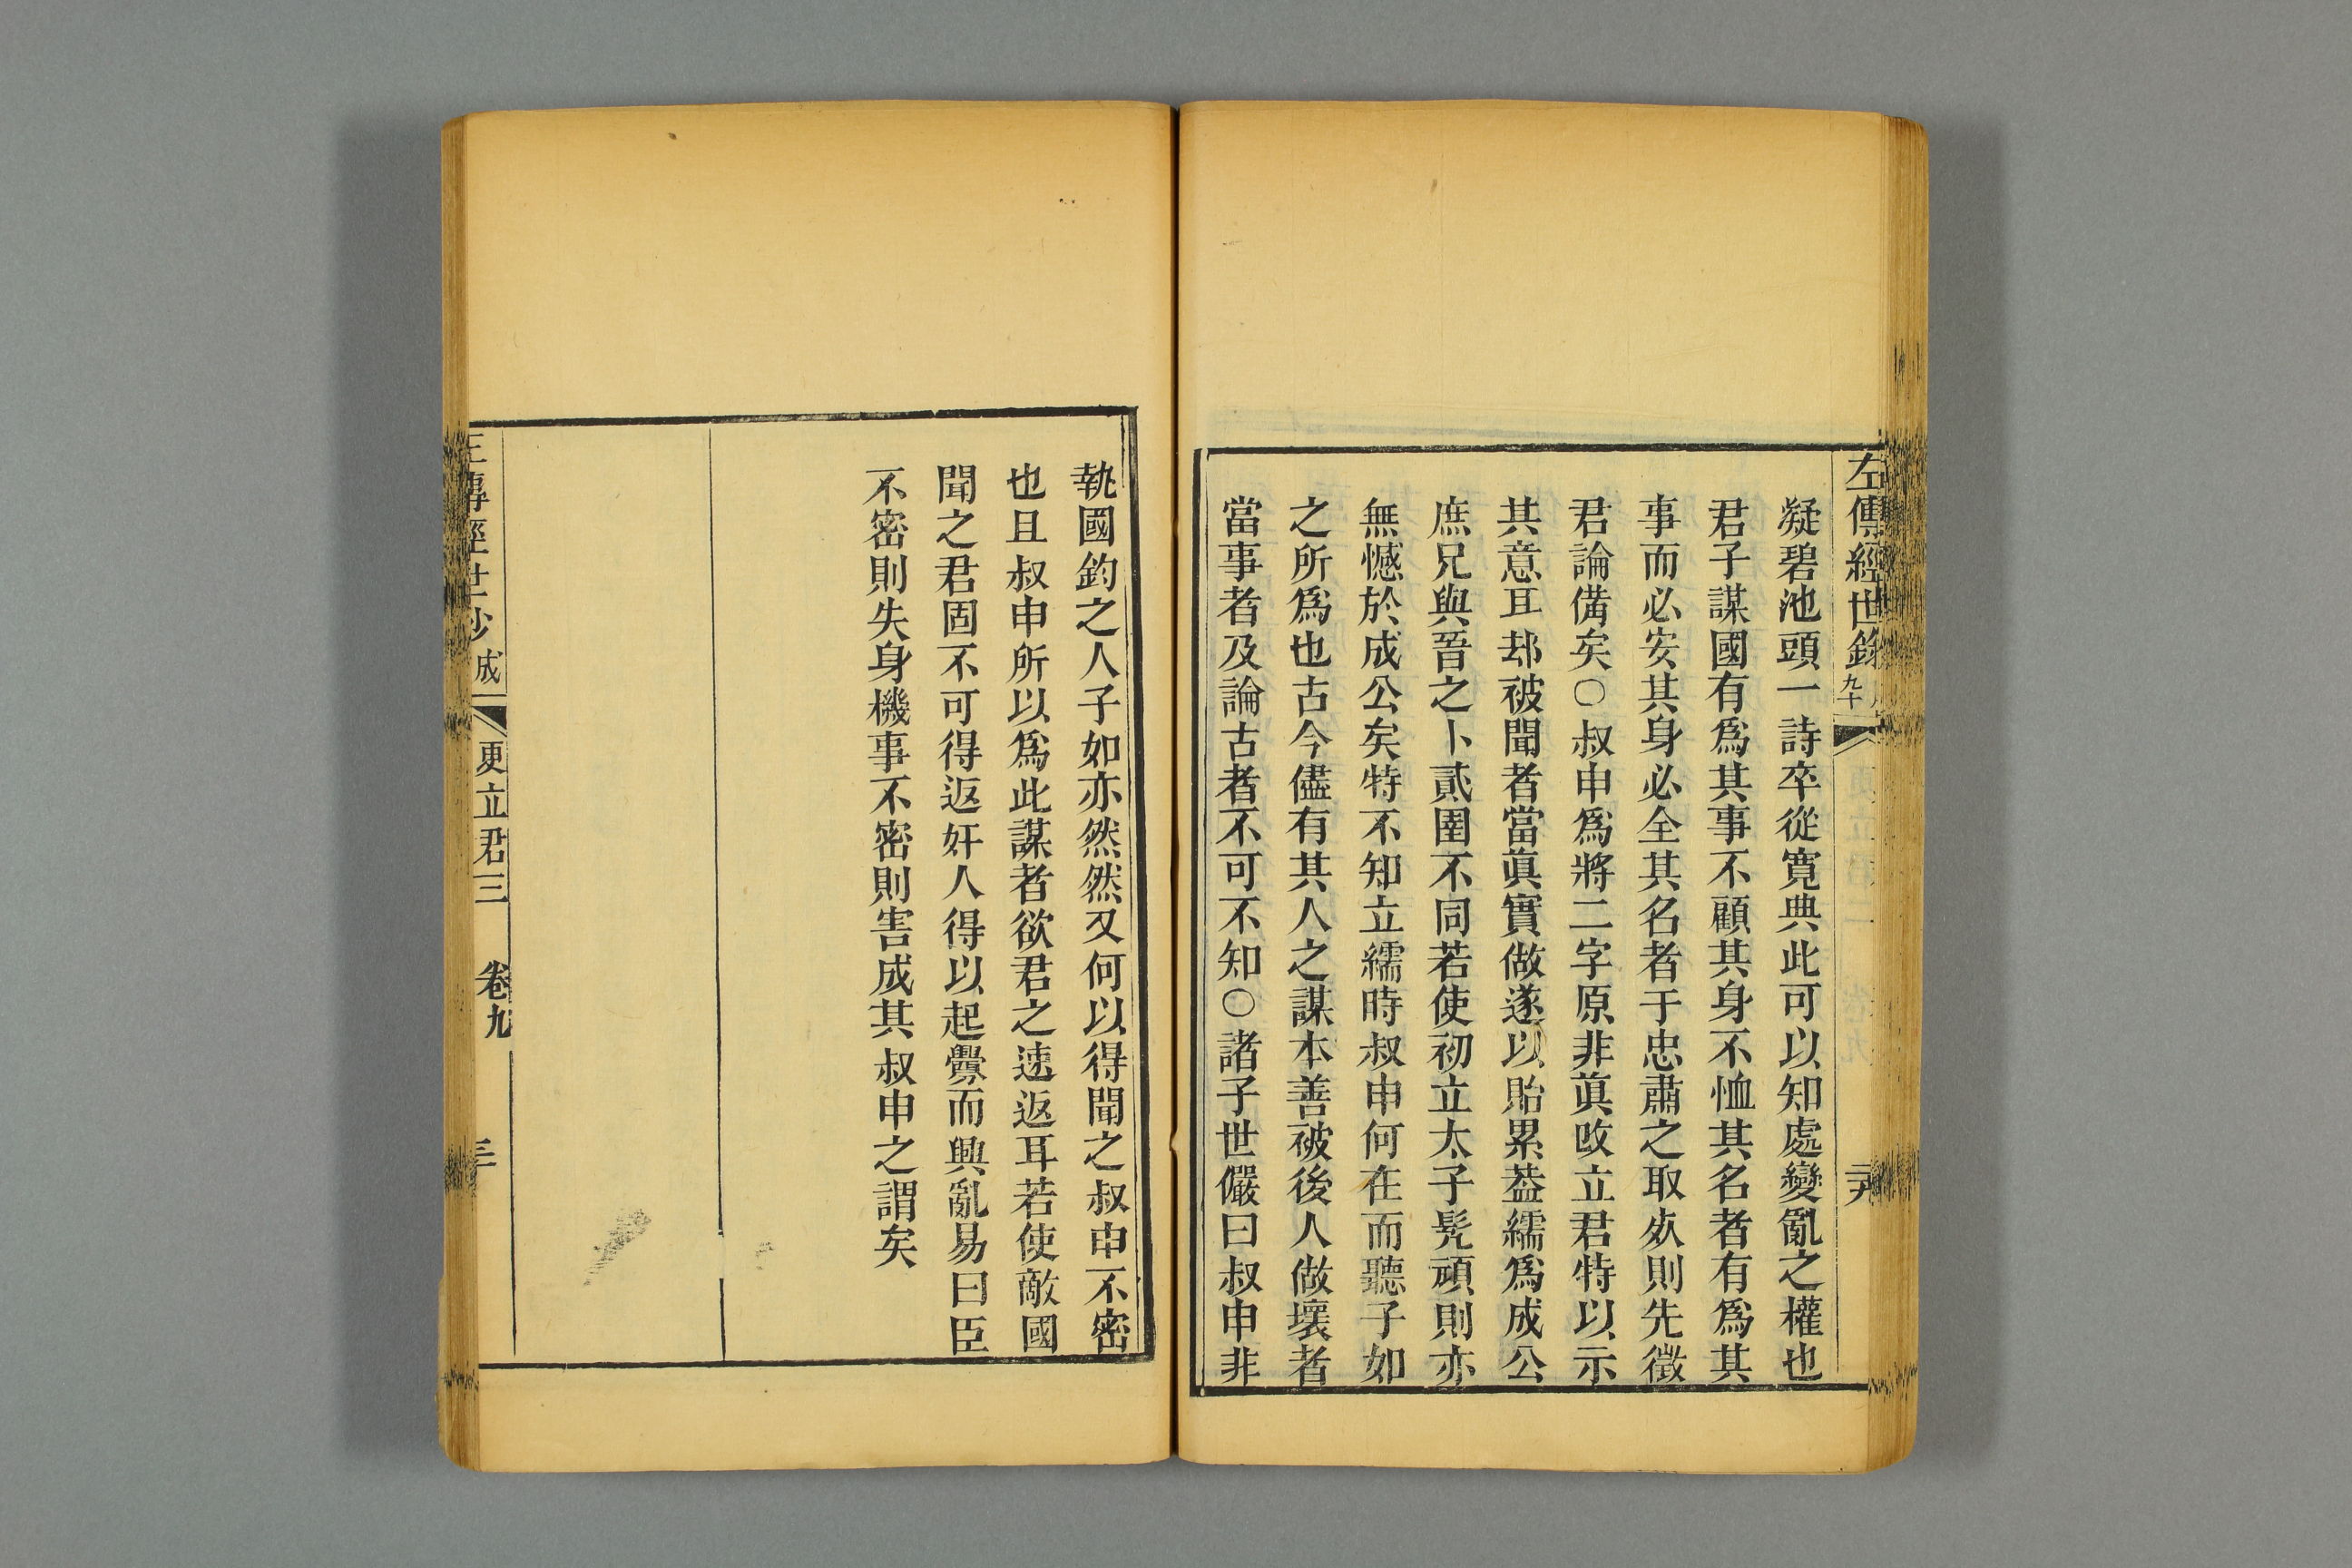 左傳經世鈔
九十
凝碧池頭一詩卒從寛典此可以知處變亂之權也
君子謀國有爲其事不顧其身不恤其名者有爲其
事而必安其身必全其名者于忠肅之取㱙則先徵
君論備矣○叔申爲將二字原非眞改立君特以示
其意耳却被聞者當眞實做遂以貽累葢繻爲成公
庶兄與晉之卜貳圉不同若使初立太子髡頑則亦
無憾於成公矣特不知立繻時叔申何在而聽子如
之所爲也古今儘有其人之謀本善被後人做壞者
當事者及論古者不可不知○諸子世儼曰叔申非
執國鈞之人子如亦然然又何以得聞之叔申不密
也且叔申所以爲此謀者欲君之速返耳若使敵國
聞之君固不可得返奸人得以起釁而興亂易曰臣
不密則失身機事不密則害成其叔申之謂矣
傳經世鈔 成 更立君三 卷九